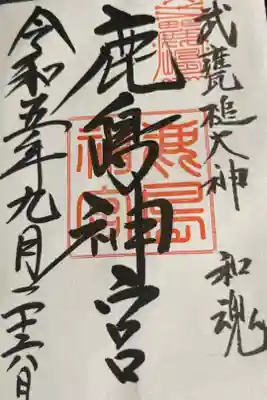 武甕槌大神 和魂
鹿嶋神宮
令和五年九月二十六日